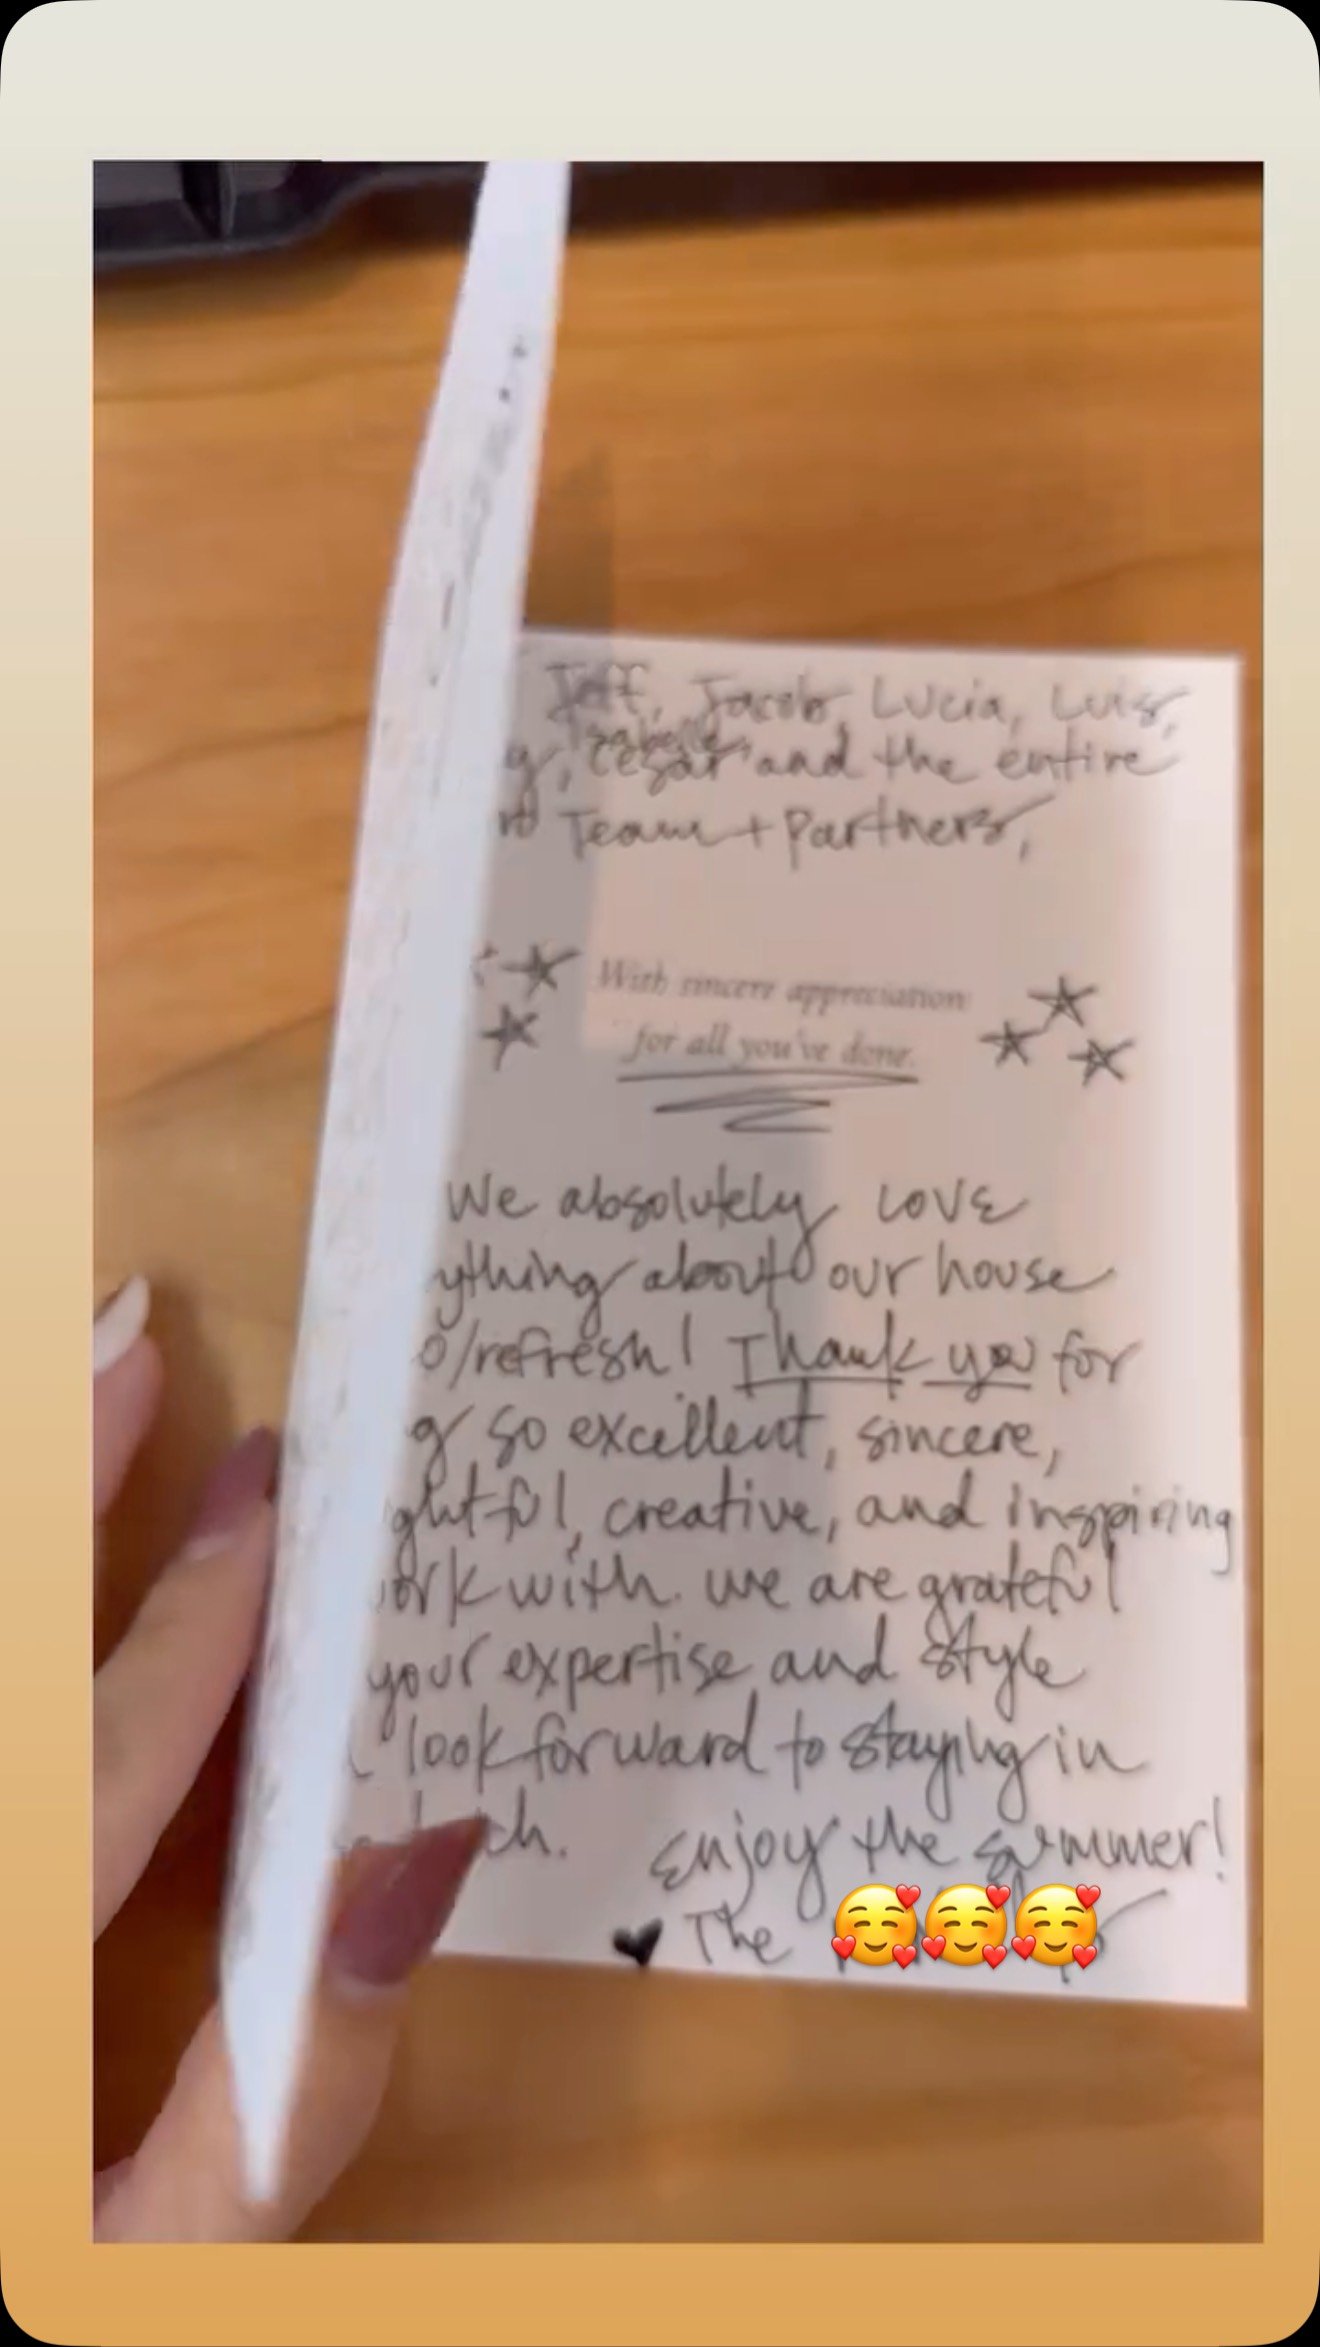 Jeff, Jacob, Lucia, Luis,
Isabelle,
g, Cesar and the entire
Team + Partners,
With sincere appreciation
for all you've done.
We absolutely LOVE
ything about our house
o/refresh! Thank you for
g so excellent, sincere,
ghtful, creative, and inspiring
ork with. We are grateful
your expertise and style
look forward to staying in
ch. Enjoy the summer!
The